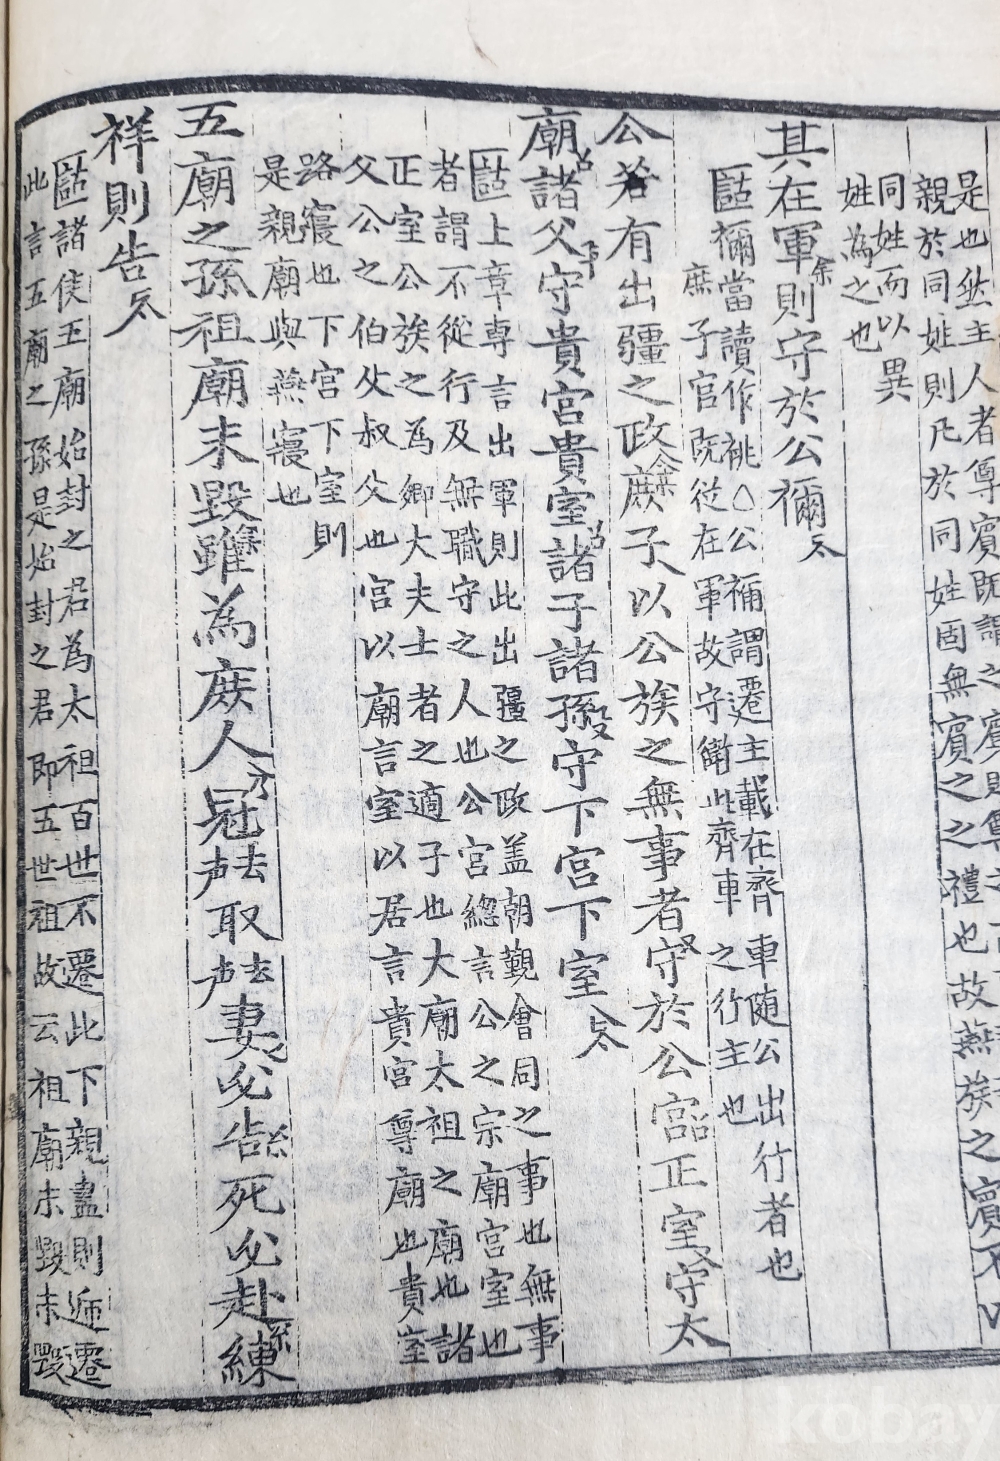 是也然主人者尊賓既謂之賓則
親於同姓則凡於同姓固無賓之之禮也故燕族之賓不以
同姓而以異
姓為之也
其在軍則守於公禰
禰當讀作祧△公禰謂遷主載在齊車隨公出行者也
庶子官既從在軍故守衛此齊車之行主也
公若有出疆之政庶子以公族之無事者守於公宮正室守太
廟諸父守貴宮貴室諸子諸孫守下宮下室
上章專言出軍則此出疆之政盖朝覲會同之事也無事
者謂不從行及無職守之人也公宮緫言公之宗廟宮室也
正室公族之為卿大夫士者之適子也大廟太祖之廟也諸
父公之伯父叔父也宮以廟言室以居言貴宮尊廟也貴室
路寢也下宮下室則
是親廟與燕寢也
五廟之孫祖廟未毀雖為庶人冠去声取去声妻必告死必赴練
祥則告
諸侯五廟始封之君為太祖百世不遷此下親盡則逓遷
此言五廟之孫是始封之君即五世祖故云祖廟未毀未毀
kobay